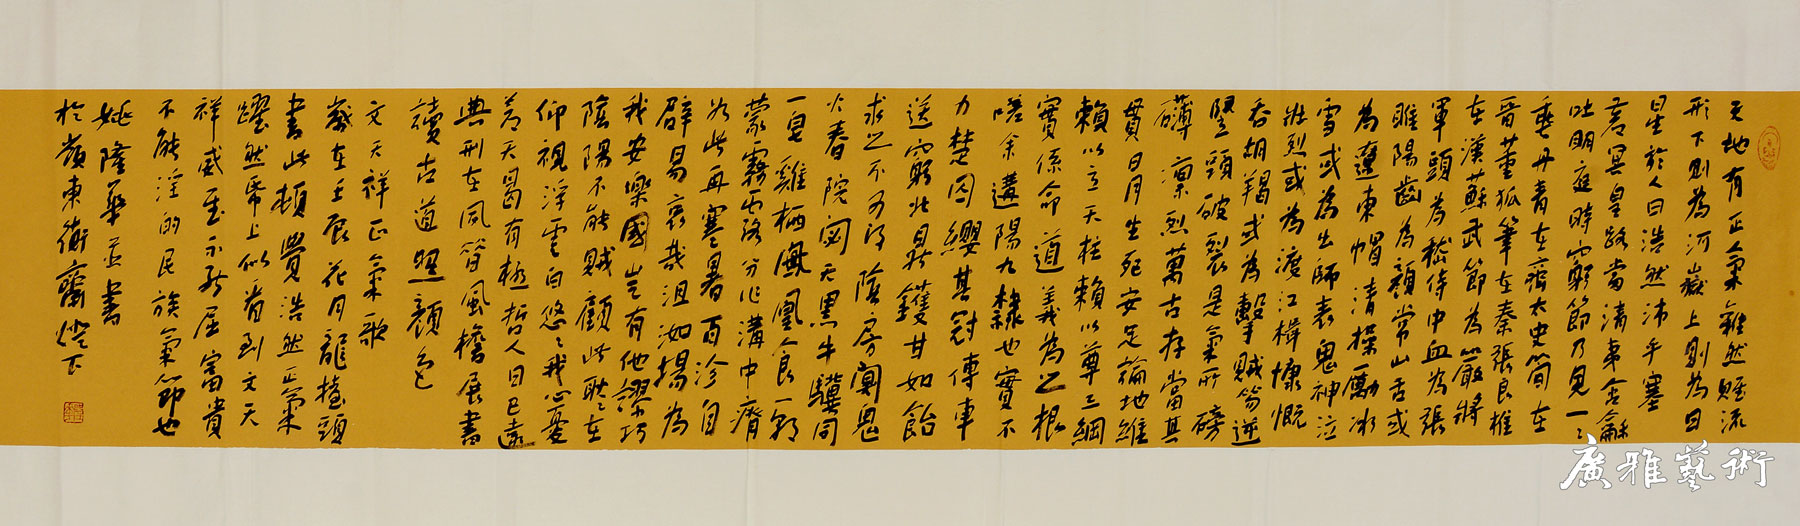 天地有正氣雜然賦流
形下則為河嶽上則為日
星於人曰浩然沛乎塞
蒼冥皇路當清夷含龢
吐明庭時窮節乃見一一
垂丹青在齊太史簡在
晉董狐筆在秦張良椎
在漢蘇武節為嚴將
軍頭為嵇侍中血為張
睢陽齒為顏常山舌或
為遼東帽清操勵冰
雪或為出師表鬼神泣
壯烈或為渡江楫慷慨
吞胡羯或為擊賊笏逆
豎頭破裂是氣所磅
礴凜烈萬古存當其
貫日月生死安足論地維
賴以立天柱賴以尊三綱
實係命道義為之根
嗟余遘陽九隸也實不
力楚囚纓其冠傳車
送窮北鼎鑊甘如飴
求之不可得陰房闃鬼
火春院閟天黑牛驥同
一皂雞栖鳳凰食一朝
蒙霧露分作溝中瘠
如此再寒暑百沴自
辟易哀哉沮洳場為
我安樂國豈有他謬巧
陰陽不能賊顧此耿耿在
仰視浮雲白悠悠我心憂
蒼天曷有極哲人日已遠
典刑在夙昔風檐展書
讀古道照顏色
文天祥正氣歌
歲在壬辰花月龍抬頭
書此頓覺浩然正氣
躍然紙上似看到文天
祥威武不能屈富貴
不能淫的民族氣節也
姚隆華並書
於嶺東衡齋燈下
廣雅藝術